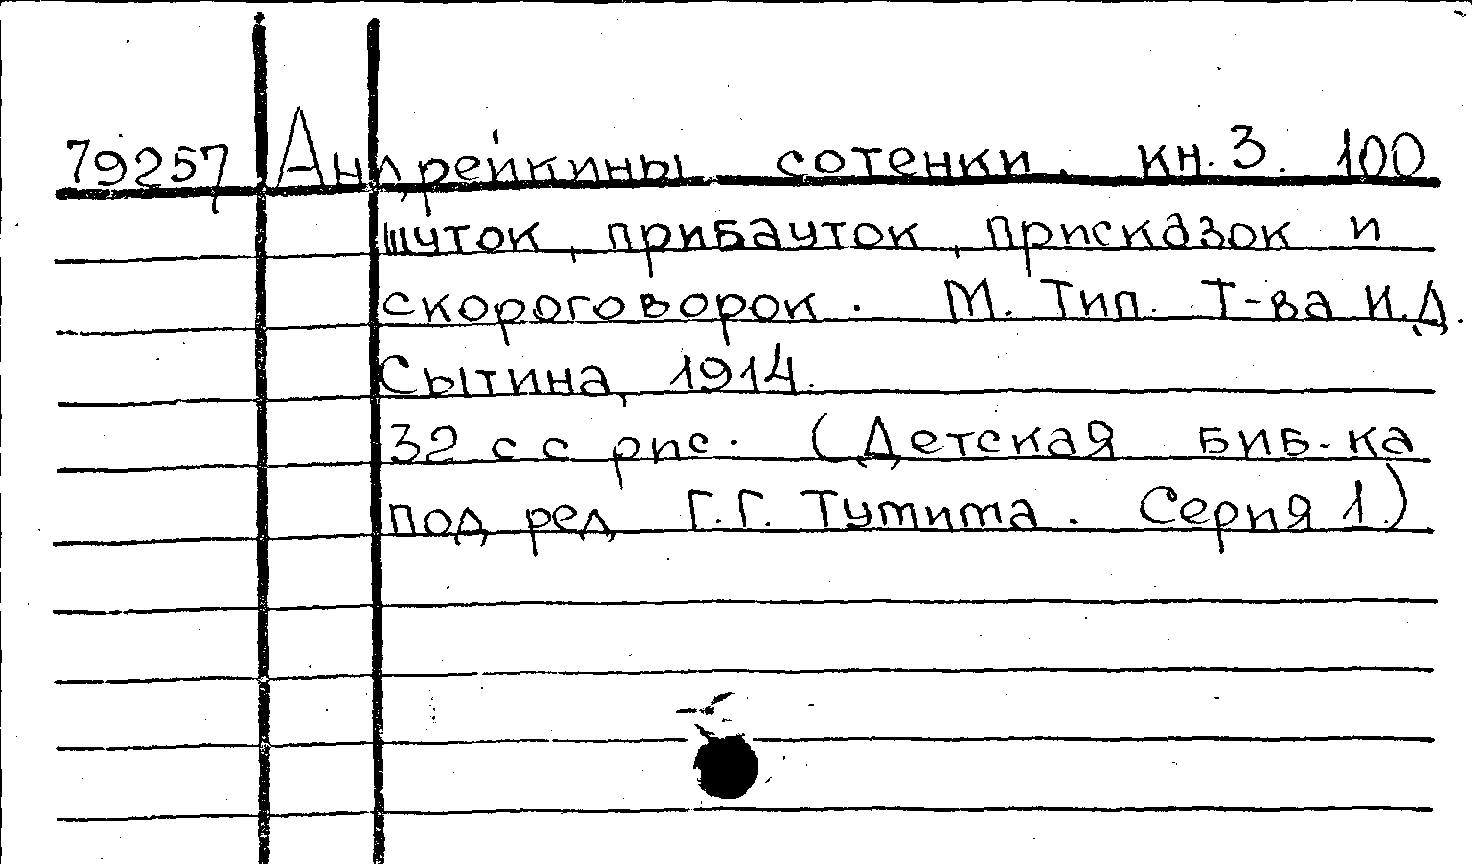 79257 Андрейкины сотенки. кн. 3. 100
шуток, прибауток, присказок и
скороговорок. М. Тип. Т-ва И.Д.
Сытина, 1914.
32 с с рис. (Детская биб-ка
под ред Г.Г. Тумима. Серия 1.)